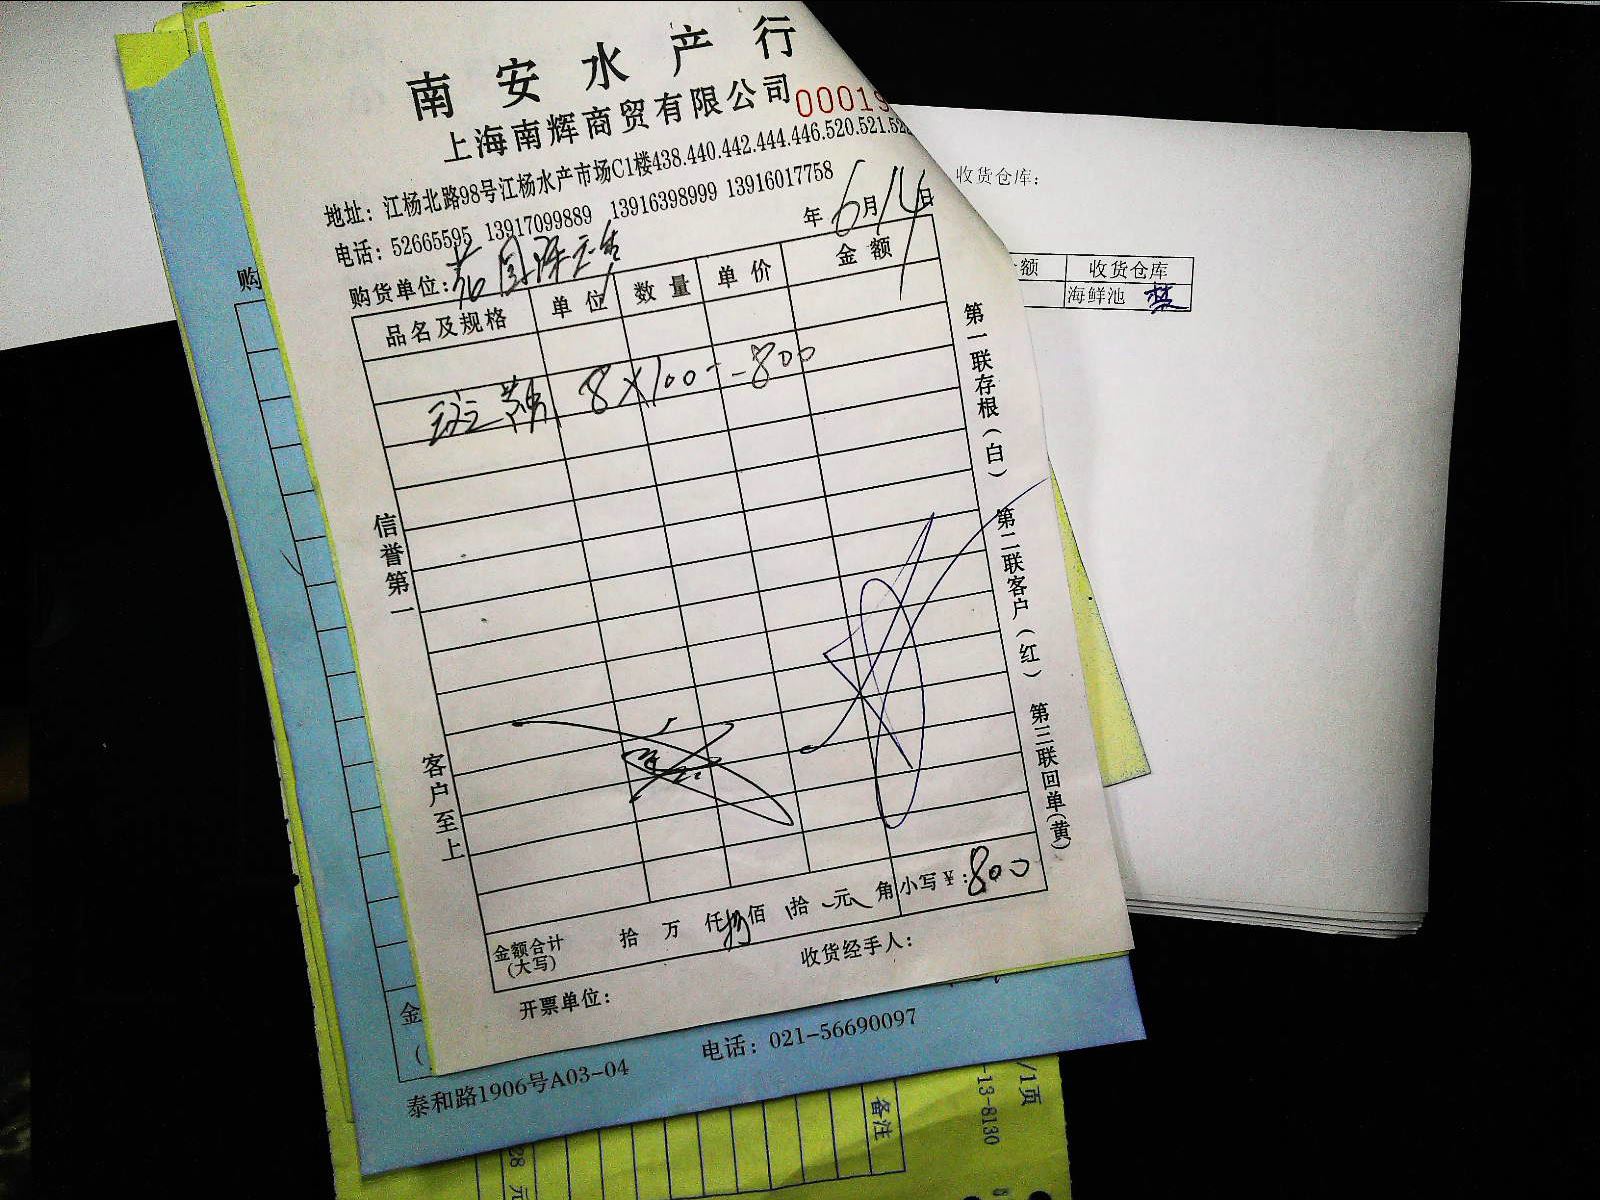 南安水产行
上海南辉商贸有限公司 00019
地址：江杨北路98号江杨水产市场C1楼438.440.442.444.446.520.521.52
电话：52665595 13917099889 13916398999 13916017758
年 6月14日
购货单位：
品名及规格 单位 数量 单价 金额
8×100--800
信誉第一
客户至上
第一联存根(白)
第二联客户(红)
第三联回单(黄)
金额合计(大写) 拾 万 仟 捌佰 拾 元 角 小写￥：800
开票单位：
收货经手人：
收货仓库：
额 收货仓库
海鲜池
购
金
(
泰和路1906号A03-04
电话：021-56690097
/1页
-13-8130
备注
28 元